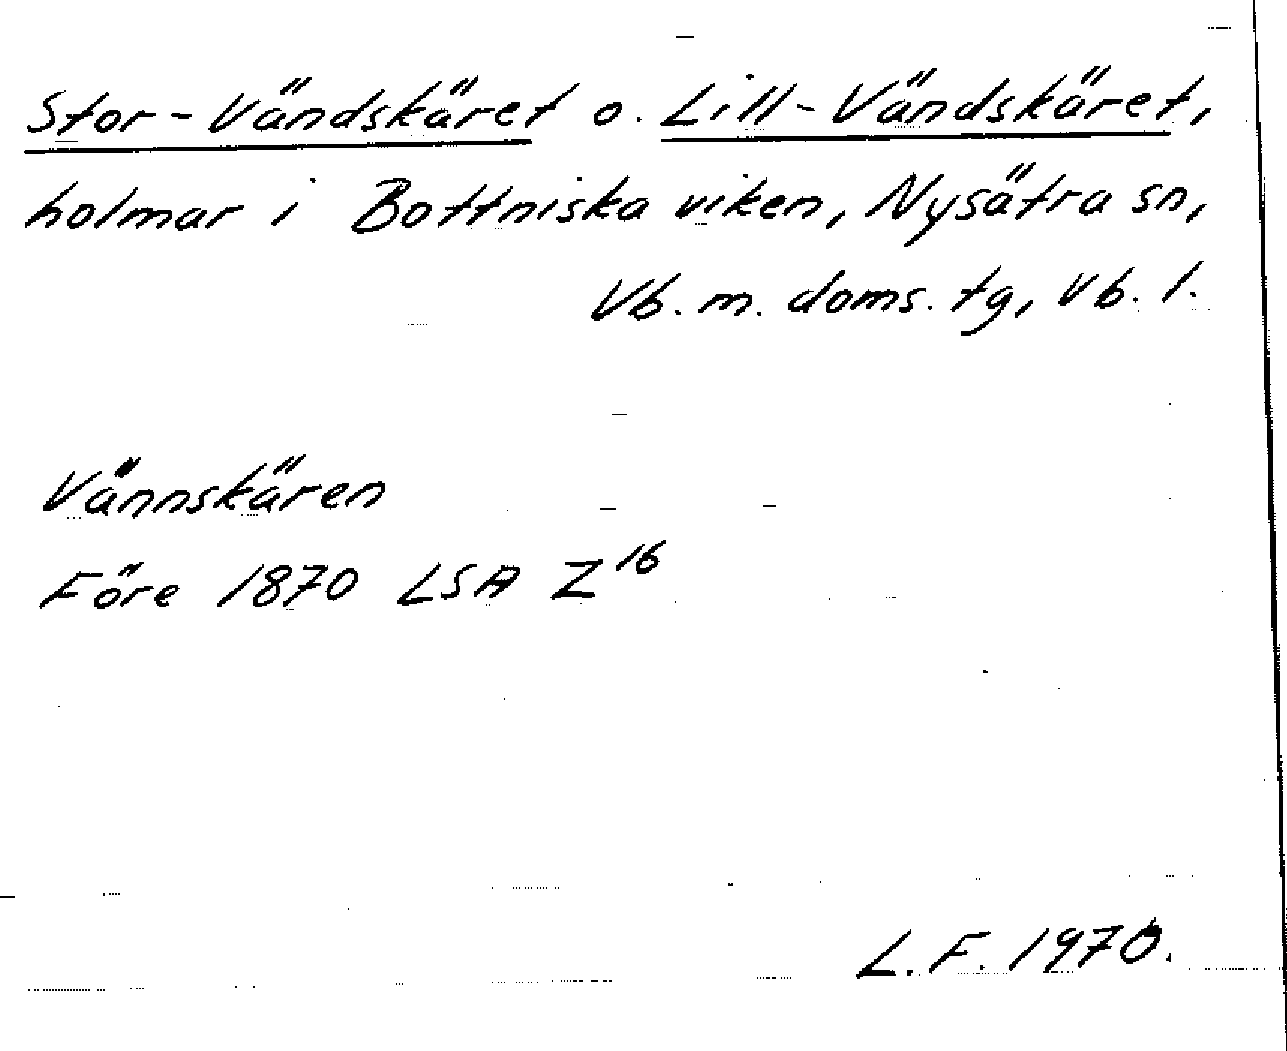 Stor-Vändskäret o. Lill-Vändskäret,
holmar i Bottniska viken, Nysätra sn,
Vb. m. doms. tg, Vb. l.
Vännskären
Före 1870 LSA Z16
L. F. 1970.